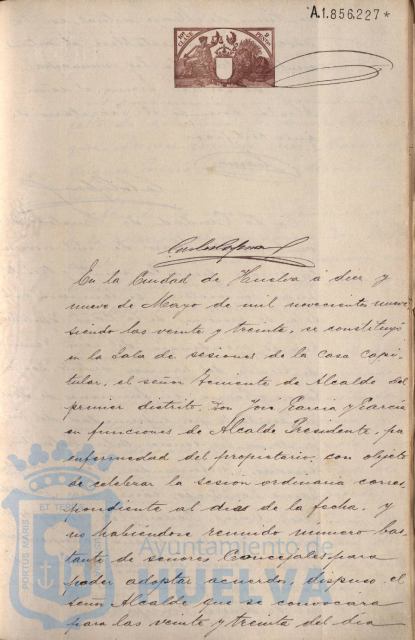 A.1.856.227*
En la Ciudad de Huelva á diez y
nueve de Mayo de mil novecientos nueve
siendo las veinte y treinta, se constituyó
en la Sala de sesiones de la casa capi-
tular, el señor Teniente de Alcalde del
primer distrito, Don José Garcia y Garcia
en funciones de Alcalde Presidente, por
enfermedad del propietario, con objeto
de celebrar la sesión ordinaria corres
pondiente al dia de la fecha, y
no habiéndose reunido número bas
tante de señores Concejales para
poder adoptar acuerdo, dispuso el
señor Alcalde que se convocára
para las veinte y treinta del dia
PORTUS MARIS
Ayuntamiento de
HUELVA